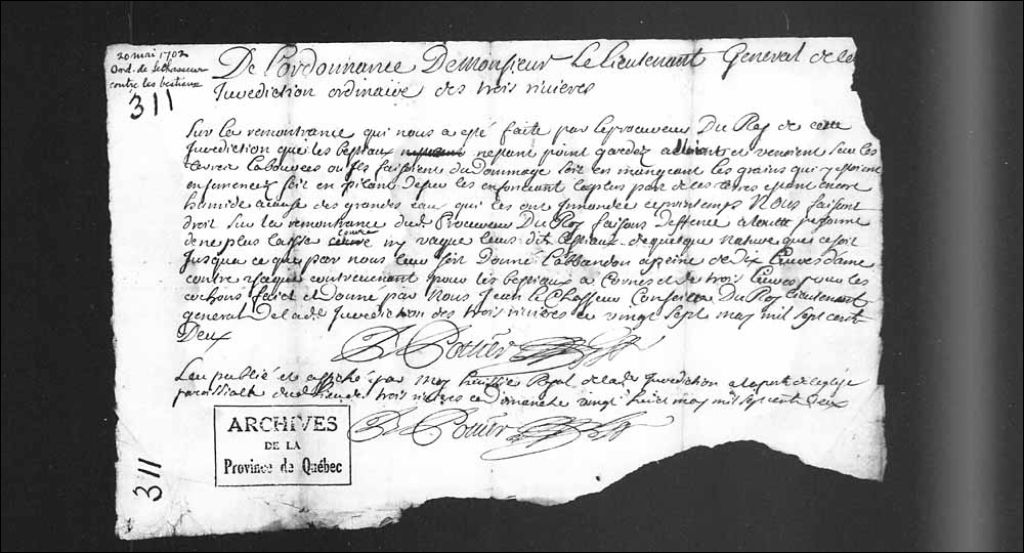 20 mai 1702
Ord. de lechasseur
contre les bestiaux
311
De L'ordonnance De Monsieur Le Lieutenant General de la
Jurediction ordinaire des trois rivieres
Sur la remontrance qui nous a esté faite par le procureur Du Roy de cette
Jurediction que les bestiaux nestant point gardez alloient et venoient sur les
terres labourées ou ils faisoient du dommage soit en mangeant les grains qui y estoient
ensemencez soit en les enfonceant la plus part de les terres estant encore
humide a cause des grandes eau qui les ont Jnnondée ce printemps Nous faisant
droit sur la remontrance dud. Procureur Du Roy faisons deffence a toutte personne
de ne plus laisser courir ny vaguer leurs dit bestiaux de quelque nature que ce soit
Jusqua ce que par nous leur soit Donné Labbandon a peine de Dix Livres Dame
contre chaque contrevenant pour les bestiaux a Cornes et de trois Livres pour les
cochons faict et donné par Nous Jean le Chasseur Conseiller Du Roy Lieutenant
general De lad. Jurediction des trois rivieres ce vingt sept may mil sept cent
Deux
D. Pottier
Leu publié et affiché par moy huissier Royal de lad. Jurediction a la porte de leglise
paroissialle dud. lieu des trois rivieres ce dimanche vingt huict may mil sept cent Deux
D. Pottier
ARCHIVES
DE LA
Province de Québec
311